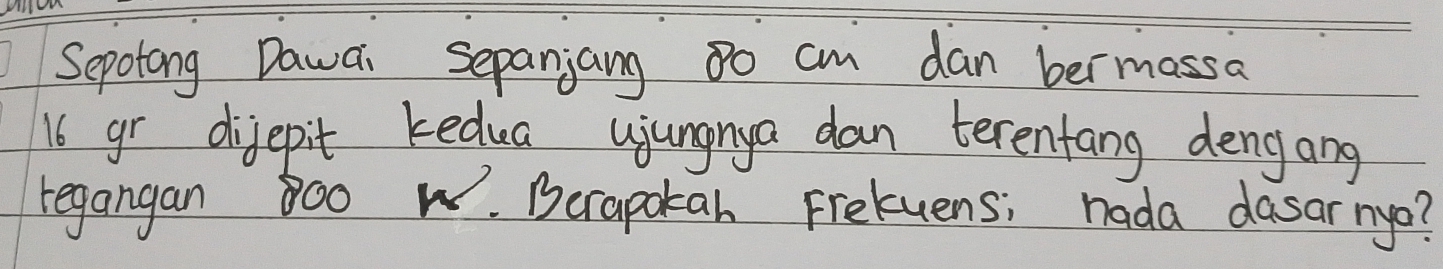 Sepotong Dawai sepanjang 80 cm dan bermassa
16 gr dijepit kedua ujungnya dan terentang dengang
tegangan 800 N. Berapakah Frekuensi nada dasarnya?